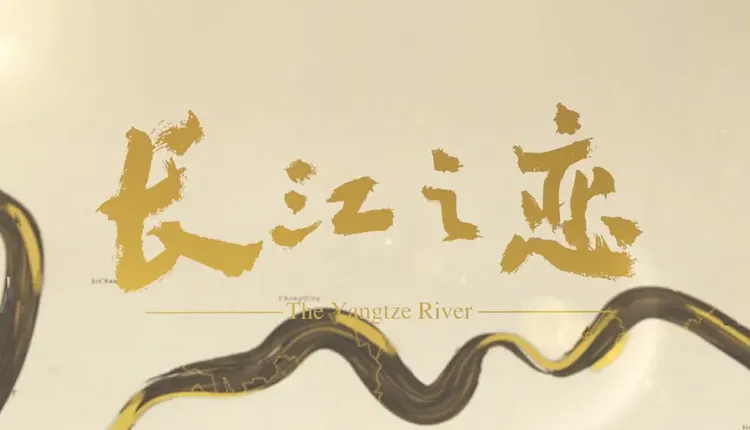 长江之恋
SiChuan
ChongQing
The Yangtze River